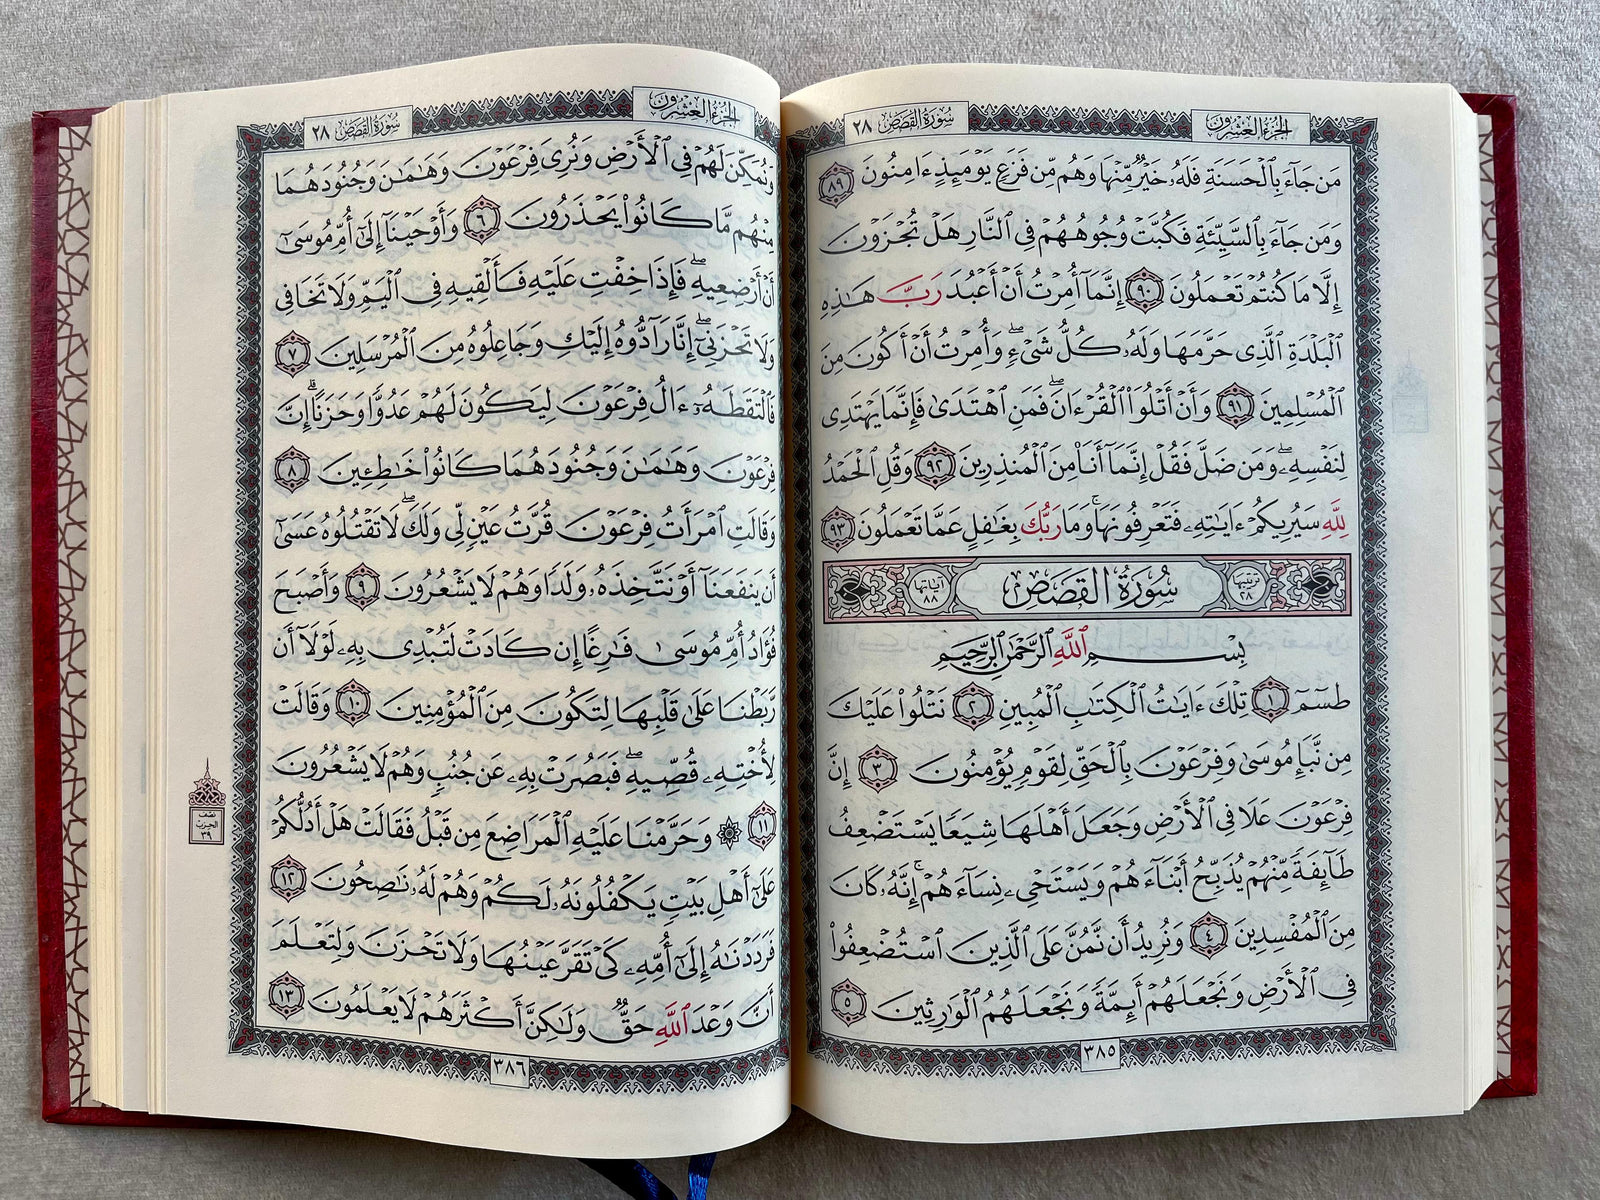 سُورَةُ القَصَصِ ٢٨
الجُزْءُ العِشْرُونَ
مَن جَآءَ بِٱلْحَسَنَةِ فَلَهُۥ خَيْرٌ مِّنْهَا وَهُم مِّن فَزَعٍ يَوْمَئِذٍ ءَامِنُونَ ٨٩
وَمَن جَآءَ بِٱلسَّيِّئَةِ فَكُبَّتْ وُجُوهُهُمْ فِى ٱلنَّارِ هَلْ تُجْزَوْنَ
إِلَّا مَا كُنتُمْ تَعْمَلُونَ ٩٠ إِنَّمَآ أُمِرْتُ أَنْ أَعْبُدَ رَبَّ هَٰذِهِ
ٱلْبَلْدَةِ ٱلَّذِى حَرَّمَهَا وَلَهُۥ كُلُّ شَىْءٍ ۖ وَأُمِرْتُ أَنْ أَكُونَ مِنَ
ٱلْمُسْلِمِينَ ٩١ وَأَنْ أَتْلُوَا۟ ٱلْقُرْءَانَ ۖ فَمَنِ ٱهْتَدَىٰ فَإِنَّمَا يَهْتَدِى
لِنَفْسِهِۦ ۖ وَمَن ضَلَّ فَقُلْ إِنَّمَآ أَنَا۠ مِنَ ٱلْمُنذِرِينَ ٩٢ وَقُلِ ٱلْحَمْدُ
لِلَّهِ سَيُرِيكُمْ ءَايَٰتِهِۦ فَتَعْرِفُونَهَا ۚ وَمَا رَبُّكَ بِغَٰفِلٍ عَمَّا تَعْمَلُونَ ٩٣
ترتيبها ٢٨ سُورَةُ القَصَصِ آياتها ٨٨
بِسْمِ ٱللَّهِ ٱلرَّحْمَٰنِ ٱلرَّحِيمِ
طسٓمٓ ١ تِلْكَ ءَايَٰتُ ٱلْكِتَٰبِ ٱلْمُبِينِ ٢ نَتْلُوا۟ عَلَيْكَ
مِن نَّبَإِ مُوسَىٰ وَفِرْعَوْنَ بِٱلْحَقِّ لِقَوْمٍ يُؤْمِنُونَ ٣ إِنَّ
فِرْعَوْنَ عَلَا فِى ٱلْأَرْضِ وَجَعَلَ أَهْلَهَا شِيَعًا يَسْتَضْعِفُ
طَآئِفَةً مِّنْهُمْ يُذَبِّحُ أَبْنَآءَهُمْ وَيَسْتَحْىِۦ نِسَآءَهُمْ ۚ إِنَّهُۥ كَانَ
مِنَ ٱلْمُفْسِدِينَ ٤ وَنُرِيدُ أَن نَّمُنَّ عَلَى ٱلَّذِينَ ٱسْتُضْعِفُوا۟
فِى ٱلْأَرْضِ وَنَجْعَلَهُمْ أَئِمَّةً وَنَجْعَلَهُمُ ٱلْوَٰرِثِينَ ٥
٣٨٥
سُورَةُ القَصَصِ ٢٨
الجُزْءُ العِشْرُونَ
وَنُمَكِّنَ لَهُمْ فِى ٱلْأَرْضِ وَنُرِىَ فِرْعَوْنَ وَهَٰمَٰنَ وَجُنُودَهُمَا
مِنْهُم مَّا كَانُوا۟ يَحْذَرُونَ ٦ وَأَوْحَيْنَآ إِلَىٰٓ أُمِّ مُوسَىٰٓ
أَنْ أَرْضِعِيهِ ۖ فَإِذَا خِفْتِ عَلَيْهِ فَأَلْقِيهِ فِى ٱلْيَمِّ وَلَا تَخَافِى
وَلَا تَحْزَنِىٓ ۖ إِنَّا رَآدُّوهُ إِلَيْكِ وَجَاعِلُوهُ مِنَ ٱلْمُرْسَلِينَ ٧
فَٱلْتَقَطَهُۥٓ ءَالُ فِرْعَوْنَ لِيَكُونَ لَهُمْ عَدُوًّا وَحَزَنًا ۗ إِنَّ
فِرْعَوْنَ وَهَٰمَٰنَ وَجُنُودَهُمَا كَانُوا۟ خَٰطِـِٔينَ ٨
وَقَالَتِ ٱمْرَأَتُ فِرْعَوْنَ قُرَّتُ عَيْنٍ لِّى وَلَكَ ۖ لَا تَقْتُلُوهُ عَسَىٰٓ
أَن يَنفَعَنَآ أَوْ نَتَّخِذَهُۥ وَلَدًا وَهُمْ لَا يَشْعُرُونَ ٩ وَأَصْبَحَ
فُؤَادُ أُمِّ مُوسَىٰ فَٰرِغًا ۖ إِن كَادَتْ لَتُبْدِى بِهِۦ لَوْلَآ أَن
رَّبَطْنَا عَلَىٰ قَلْبِهَا لِتَكُونَ مِنَ ٱلْمُؤْمِنِينَ ١٠ وَقَالَتْ
لِأُخْتِهِۦ قُصِّيهِ ۖ فَبَصُرَتْ بِهِۦ عَن جُنُبٍ وَهُمْ لَا يَشْعُرُونَ
١١ ۞ وَحَرَّمْنَا عَلَيْهِ ٱلْمَرَاضِعَ مِن قَبْلُ فَقَالَتْ هَلْ أَدُلُّكُمْ
عَلَىٰٓ أَهْلِ بَيْتٍ يَكْفُلُونَهُۥ لَكُمْ وَهُمْ لَهُۥ نَٰصِحُونَ ١٢
فَرَدَدْنَٰهُ إِلَىٰٓ أُمِّهِۦ كَىْ تَقَرَّ عَيْنُهَا وَلَا تَحْزَنَ وَلِتَعْلَمَ
أَنَّ وَعْدَ ٱللَّهِ حَقٌّ وَلَٰكِنَّ أَكْثَرَهُمْ لَا يَعْلَمُونَ ١٣
نصف
الحزب
٣٩
٣٨٦